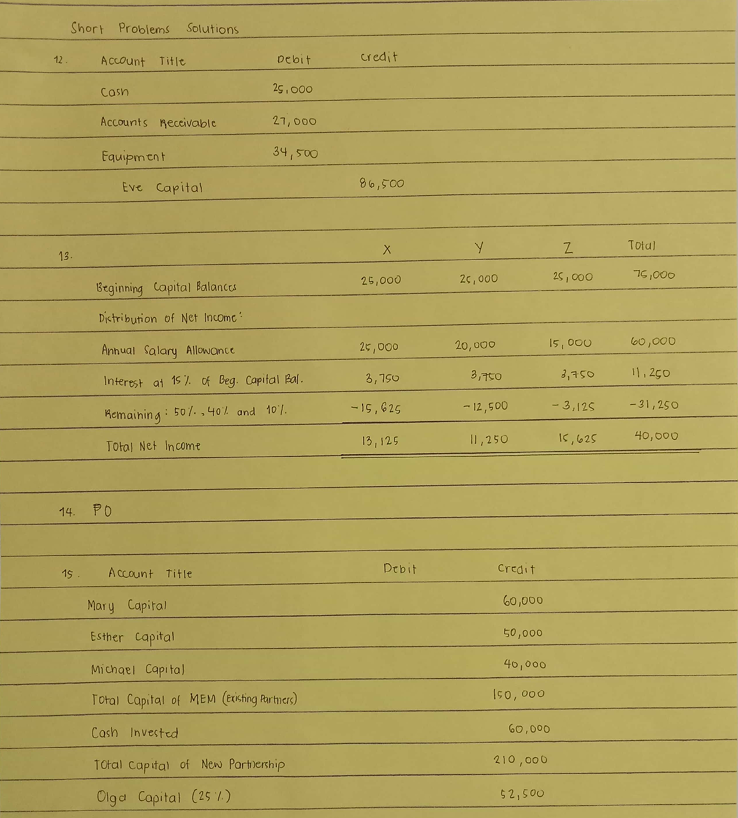 Short Problems Solutions
12. Account Title Debit Credit
Cash 25,000
Accounts Receivable 27,000
Equipment 34,500
Eve Capital 86,500
13. X Y Z Total
Beginning Capital Balances 25,000 25,000 25,000 75,000
Distribution of Net Income:
Annual Salary Allowance 25,000 20,000 15,000 60,000
Interest at 15% of Beg. Capital Bal. 3,750 3,750 3,750 11,250
Remaining: 50%, 40% and 10%. -15,625 -12,500 -3,125 -31,250
Total Net Income 13,125 11,250 15,625 40,000
14. P0
15. Account Title Debit Credit
Mary Capital 60,000
Esther Capital 50,000
Michael Capital 40,000
Total Capital of MEM (Existing Partners) 150,000
Cash Invested 60,000
Total Capital of New Partnership 210,000
Olga Capital (25%) 52,500